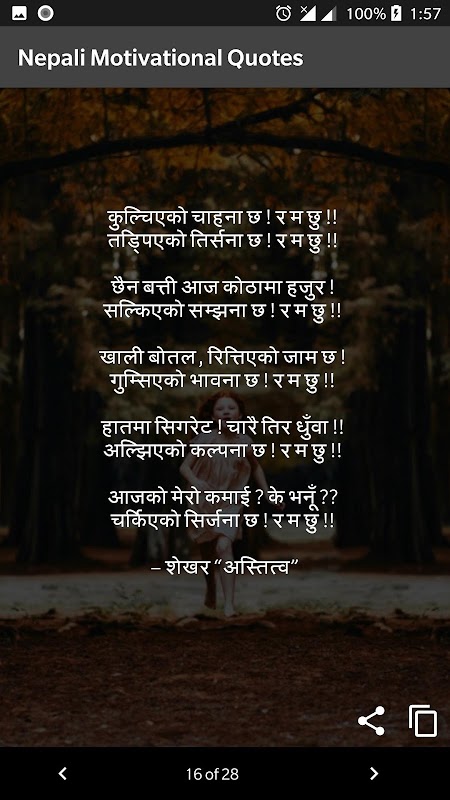 100% 1:57
Nepali Motivational Quotes
कुल्चिएको चाहना छ ! र म छु !!
तड्पिएको तिर्सना छ ! र म छु !!
छैन बत्ती आज कोठामा हजुर !
सल्किएको सम्झना छ ! र म छु !!
खाली बोतल , रित्तिएको जाम छ !
गुम्सिएको भावना छ ! र म छु !!
हातमा सिगरेट ! चारै तिर धुँवा !!
अल्झिएको कल्पना छ ! र म छु !!
आजको मेरो कमाई ? के भनूँ ??
चर्किएको सिर्जना छ ! र म छु !!
– शेखर “अस्तित्व”
16 of 28